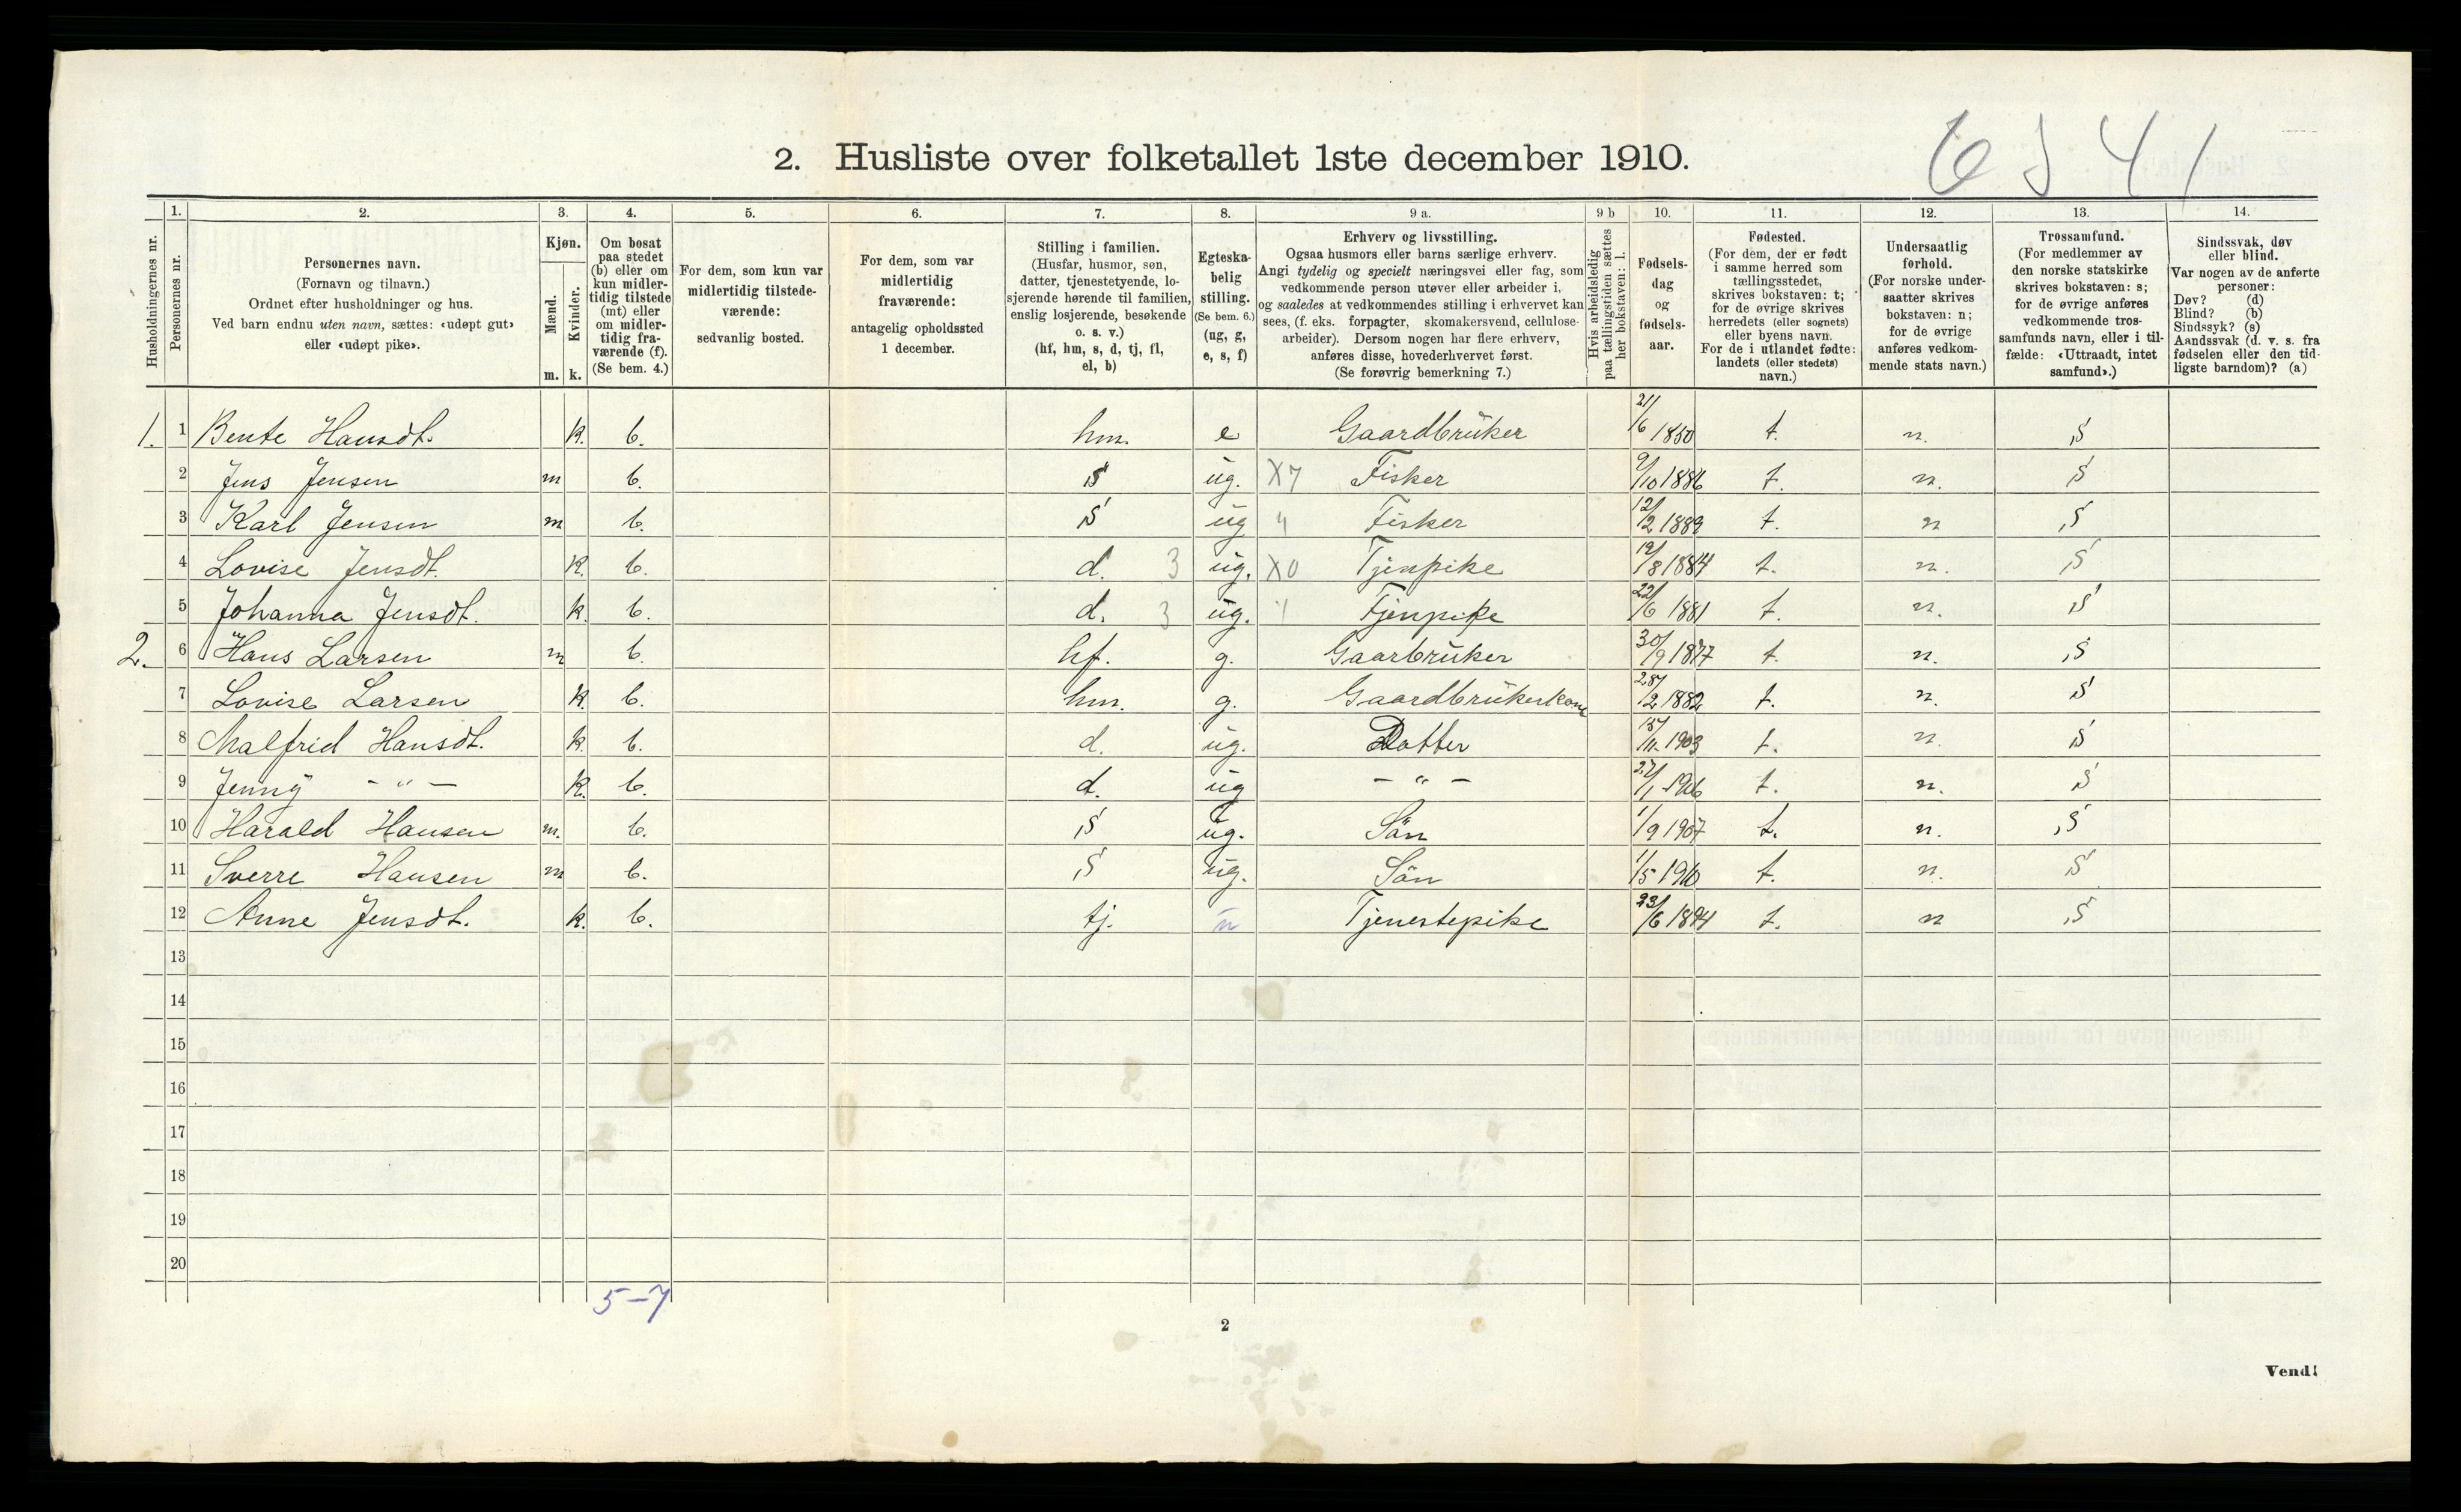 6 5 4 1
2. Husliste over folketallet 1ste december 1910.
Husholdningernes nr.
1. Personernes nr.
2. Personernes navn.
(Fornavn og tilnavn.)
Ordnet efter husholdninger og hus.
Ved barn endnu uten navn, sættes: «udøpt gut»
eller «udøpt pike».
3. Kjøn.
Mænd. m.
Kvinder. k.
4. Om bosat
paa stedet
(b) eller om
kun midler-
tidig tilstede
(mt) eller
om midler-
tidig fra-
værende (f).
(Se bem. 4.)
5. For dem, som kun var
midlertidig tilstede-
værende:
sedvanlig bosted.
6. For dem, som var
midlertidig
fraværende:
antagelig opholdssted
1 december.
7. Stilling i familien.
(Husfar, husmor, søn,
datter, tjenestetyende, lo-
sjerende hørende til familien,
enslig losjerende, besøkende
o. s. v.)
(hf, hm, s, d, tj, fl,
el, b)
8. Egteska-
belig
stilling.
(Se bem. 6.)
(ug, g,
e, s, f)
9 a. Erhverv og livsstilling.
Ogsaa husmors eller barns særlige erhverv.
Angi tydelig og specielt næringsvei eller fag, som
vedkommende person utøver eller arbeider i,
og saaledes at vedkommendes stilling i erhvervet kan
sees, (f. eks. forpagter, skomakersvend, cellulose-
arbeider). Dersom nogen har flere erhverv,
anføres disse, hovederhvervet først.
(Se forøvrig bemerkning 7.)
9 b Hvis arbeidsledig
paa tællingstiden sættes
her bokstaven: l.
10. Fødsels-
dag
og
fødsels-
aar.
11. Fødested.
(For dem, der er født
i samme herred som
tællingsstedet,
skrives bokstaven: t;
for de øvrige skrives
herredets (eller sognets)
eller byens navn.
For de i utlandet fødte:
landets (eller stedets)
navn.)
12. Undersaatlig
forhold.
(For norske under-
saatter skrives
bokstaven: n;
for de øvrige
anføres vedkom-
mende stats navn.)
13. Trossamfund.
(For medlemmer av
den norske statskirke
skrives bokstaven: s;
for de øvrige anføres
vedkommende tros-
samfunds navn, eller i til-
fælde: «Uttraadt, intet
samfund».)
14. Sindssvak, døv
eller blind.
Var nogen av de anførte
personer:
Døv? (d)
Blind? (b)
Sindssyk? (s)
Aandssvak (d. v. s. fra
fødselen eller den tid-
ligste barndom)? (a)
1. 1 Bente Hansdt. k. b. hm. e Gaardbrüker 21/6 1850 t. n. s
2 Jens Jensen m b. s ug. X7 Fisker 9/10 1886 t. n. s
3 Karl Jensen m b. s ug " Fisker 12/2 1889 t. n s
4 Lovise Jensdt. k. b. d. 3 ug. X0 Tjenpike 19/8 1884 t. n. s
5 Johanna Jensdt. k. b. d. 3 ug. " Tjenpike 22/6 1881 t. n. s
2. 6 Hans Larsen m b. hf. g. Gaarbrüker 30/9 1877 t. n. s
7 Lovise Larsen k. b. hm. g. Gaardbrükerkone 28/2 1882 t. n. s
8 Malfrid Hansdt. k. b. d. ug. Datter 15/11. 1903 t. n. s
9 Jenny - " - k. b. d. ug - " - 27/1 1906 t. n. s
10 Harald Hansen m. b. s ug. Sön 1/9 1907 t. n. s
11 Sverre Hansen m b. s ug. Sön 1/5 1910 t. n. s
12 Anne Jensdt. k. b. tj. Tjenestepike 23/6 1894 t. n s
13
14
15
16
17
18
19
20
5-7
2
Vend!